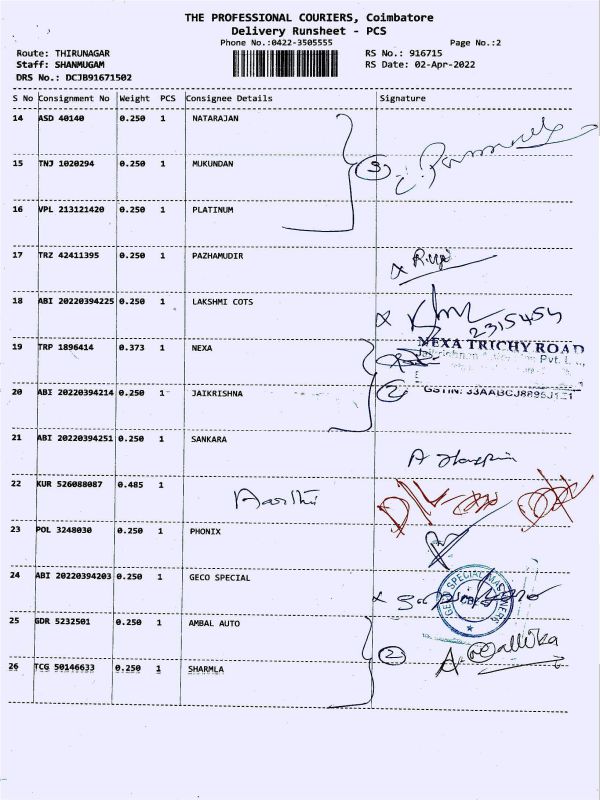 THE PROFESSIONAL COURIERS, Coimbatore
Delivery Runsheet - PCS
Phone No.:0422-3505555 Page No.:2
Route: THIRUNAGAR RS No.: 916715
Staff: SHANMUGAM RS Date: 02-Apr-2022
DRS No.: DCJB91671502
S No Consignment No Weight PCS Consignee Details Signature
14 ASD 40140 0.250 1 NATARAJAN
15 TNJ 1020294 0.250 1 MUKUNDAN 3
16 VPL 213121420 0.250 1 PLATINUM
17 TRZ 42411395 0.250 1 PAZHAMUDIR
18 ABI 20220394225 0.250 1 LAKSHMI COTS
2315454
19 TRP 1896414 0.373 1 NEXA NEXA TRICHY ROAD
Pvt.
20 ABI 20220394214 0.250 1 JAIKRISHNA 2
21 ABI 20220394251 0.250 1 SANKARA
22 KUR 526088087 0.485 1 Aarthi
23 POL 3248030 0.250 1 PHONIX
24 ABI 20220394203 0.250 1 GECO SPECIAL
25 GDR 5232501 0.250 1 AMBAL AUTO
26 TCG 50146633 0.250 1 SHARMLA 2 A. Mallika